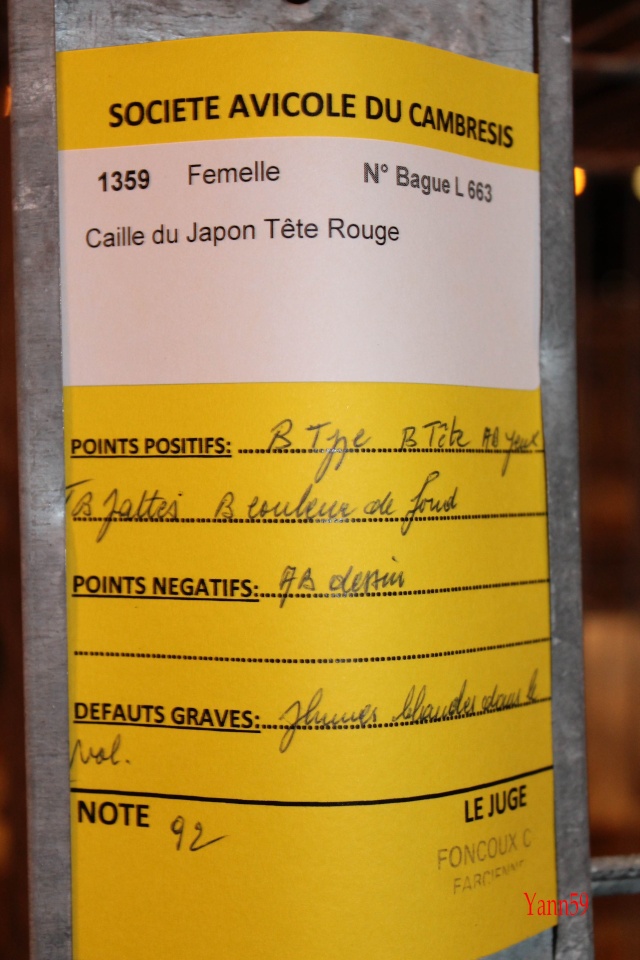 SOCIETE AVICOLE DU CAMBRESIS
1359 Femelle N° Bague L 663
Caille du Japon Tête Rouge
POINTS POSITIFS: B Type B Tête AB yeux
TB Pattes B couleur de fond
POINTS NEGATIFS: AB dessin
DEFAUTS GRAVES: plumes blanches dans le
vol.
NOTE 92 LE JUGE
FONCOUX C
FARCIENNE
Yann59